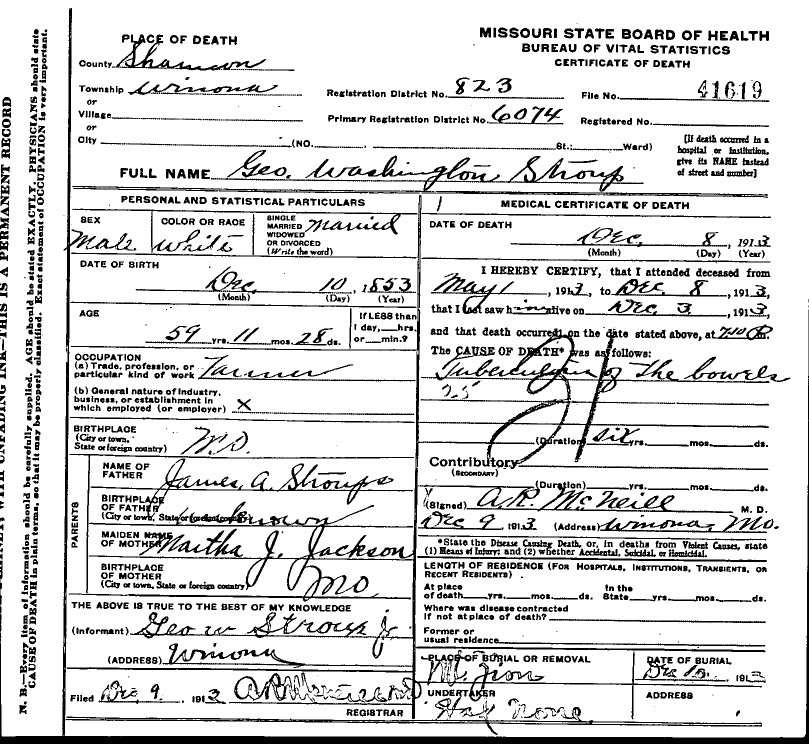 MISSOURI STATE BOARD OF HEALTH
BUREAU OF VITAL STATISTICS
CERTIFICATE OF DEATH
PLACE OF DEATH
County Shannon
Township Winona
or
Village
or
City (NO. St.; Ward)
Registration District No. 823 File No. 41619
Primary Registration District No. 6074 Registered No.
[If death occurred in a
hospital or institution,
give its NAME instead
of street and number]
FULL NAME Geo. Washington Stroup
PERSONAL AND STATISTICAL PARTICULARS
SEX
Male
COLOR OR RACE
White
SINGLE
MARRIED
WIDOWED
OR DIVORCED
(Write the word)
Married
DATE OF BIRTH
Dec. 10, 1853
(Month) (Day) (Year)
AGE
59 yrs. 11 mos. 28 ds.
If LESS than
1 day, hrs.
or min.?
OCCUPATION
(a) Trade, profession, or
particular kind of work Farmer
(b) General nature of industry,
business, or establishment in
which employed (or employer) X
BIRTHPLACE
(City or town,
State or foreign country) MO.
PARENTS
NAME OF
FATHER James A. Stroup
BIRTHPLACE
OF FATHER
(City or town, State or foreign country)
MAIDEN NAME
OF MOTHER Martha J. Jackson
BIRTHPLACE
OF MOTHER
(City or town, State or foreign country) MO
THE ABOVE IS TRUE TO THE BEST OF MY KNOWLEDGE
(Informant) Geo W Stroup Jr
(ADDRESS) Winona
Filed Dec 9 1913
REGISTRAR
MEDICAL CERTIFICATE OF DEATH
DATE OF DEATH
Dec. 8, 1913
(Month) (Day) (Year)
I HEREBY CERTIFY, that I attended deceased from
May 1, 1913, to Dec. 8, 1913,
that I last saw him alive on Dec 3, 1913,
and that death occurred, on the date stated above, at 7:10 P.m.
The CAUSE OF DEATH* was as follows:
Tuberculosis of The bowels
(Duration) six yrs. mos. ds.
Contributory
(SECONDARY)
(Duration) yrs. mos. ds.
(Signed) A.R. McNeill M. D.
Dec 9 1913 (Address) Winona, Mo.
*State the Disease Causing Death, or, in deaths from Violent Causes, state
(1) Means of Injury; and (2) whether Accidental, Suicidal, or Homicidal.
LENGTH OF RESIDENCE (FOR HOSPITALS, INSTITUTIONS, TRANSIENTS, OR
RECENT RESIDENTS)
At place
of death yrs. mos. ds.
In the
State yrs. mos. ds.
Where was disease contracted
if not at place of death?
Former or
usual residence
PLACE OF BURIAL OR REMOVAL
Mt. Zion
DATE OF BURIAL
Dec 10, 1913
UNDERTAKER
None
ADDRESS
WITH UNFADING INK—THIS IS A PERMANENT RECORD
N. B.—Every item of information should be carefully supplied. AGE should be stated EXACTLY. PHYSICIANS should state
CAUSE OF DEATH in plain terms, so that it may be properly classified. Exact statement of OCCUPATION is very important.